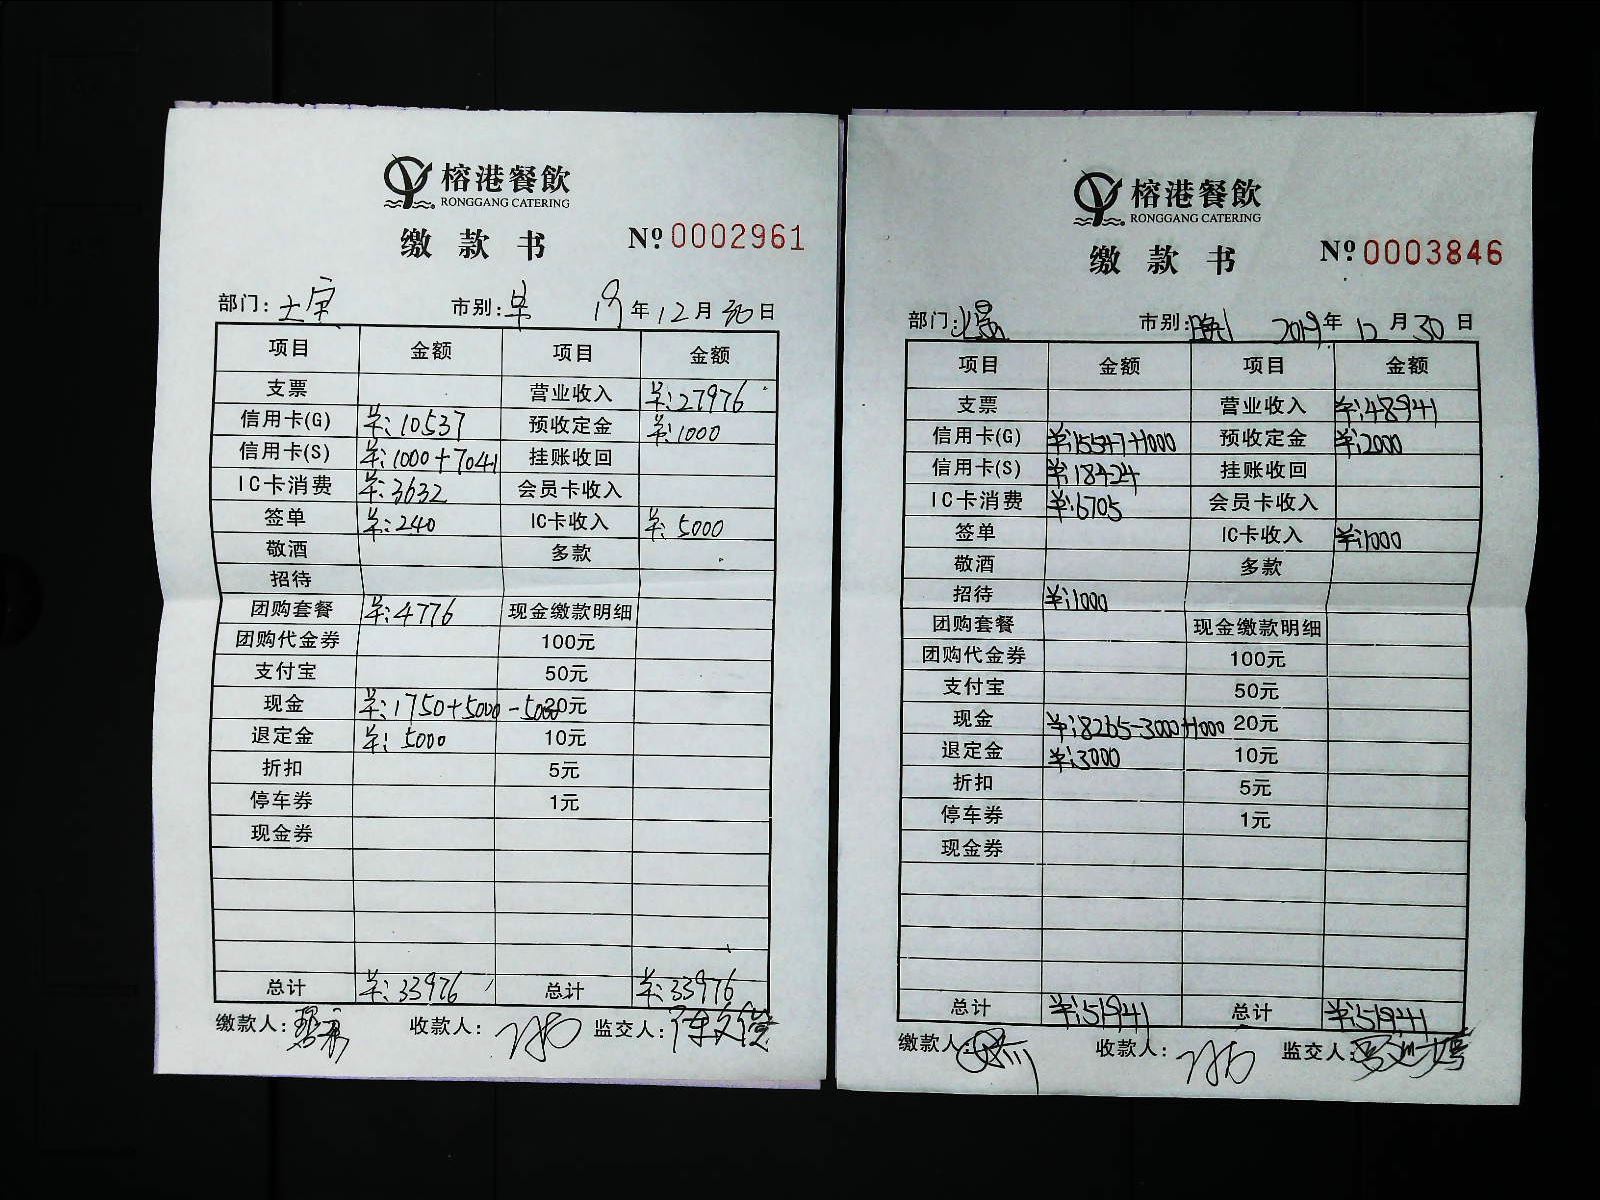 榕港餐飲
RONGGANG CATERING
缴款书 Nº 0002961
部门: 市别: 19年12月30日
项目 金额 项目 金额
支票 营业收入 ¥:27976
信用卡(G) ¥:10537 预收定金 ¥:1000
信用卡(S) ¥:1000+7041 挂账收回
IC卡消费 ¥:3632 会员卡收入
签单 ¥:240 IC卡收入 ¥:5000
敬酒 多款
招待
团购套餐 ¥:4776 现金缴款明细
团购代金券 100元
支付宝 50元
现金 ¥:1750+5000-5000 20元
退定金 ¥:5000 10元
折扣 5元
停车券 1元
现金券
总计 ¥:33976 总计 ¥:33976
缴款人: 收款人: 监交人:
榕港餐飲
RONGGANG CATERING
缴款书 Nº 0003846
部门: 市别:晚 2019年12月30日
项目 金额 项目 金额
支票 营业收入 ¥:48941
信用卡(G) ¥:15547+1000 预收定金 ¥:2000
信用卡(S) ¥:18424 挂账收回
IC卡消费 ¥:6705 会员卡收入
签单 IC卡收入 ¥:1000
敬酒 多款
招待 ¥:1000
团购套餐 现金缴款明细
团购代金券 100元
支付宝 50元
现金 ¥:8265-3000+1000 20元
退定金 ¥:3000 10元
折扣 5元
停车券 1元
现金券
总计 ¥:51941 总计 ¥:51941
缴款人: 收款人: 监交人: